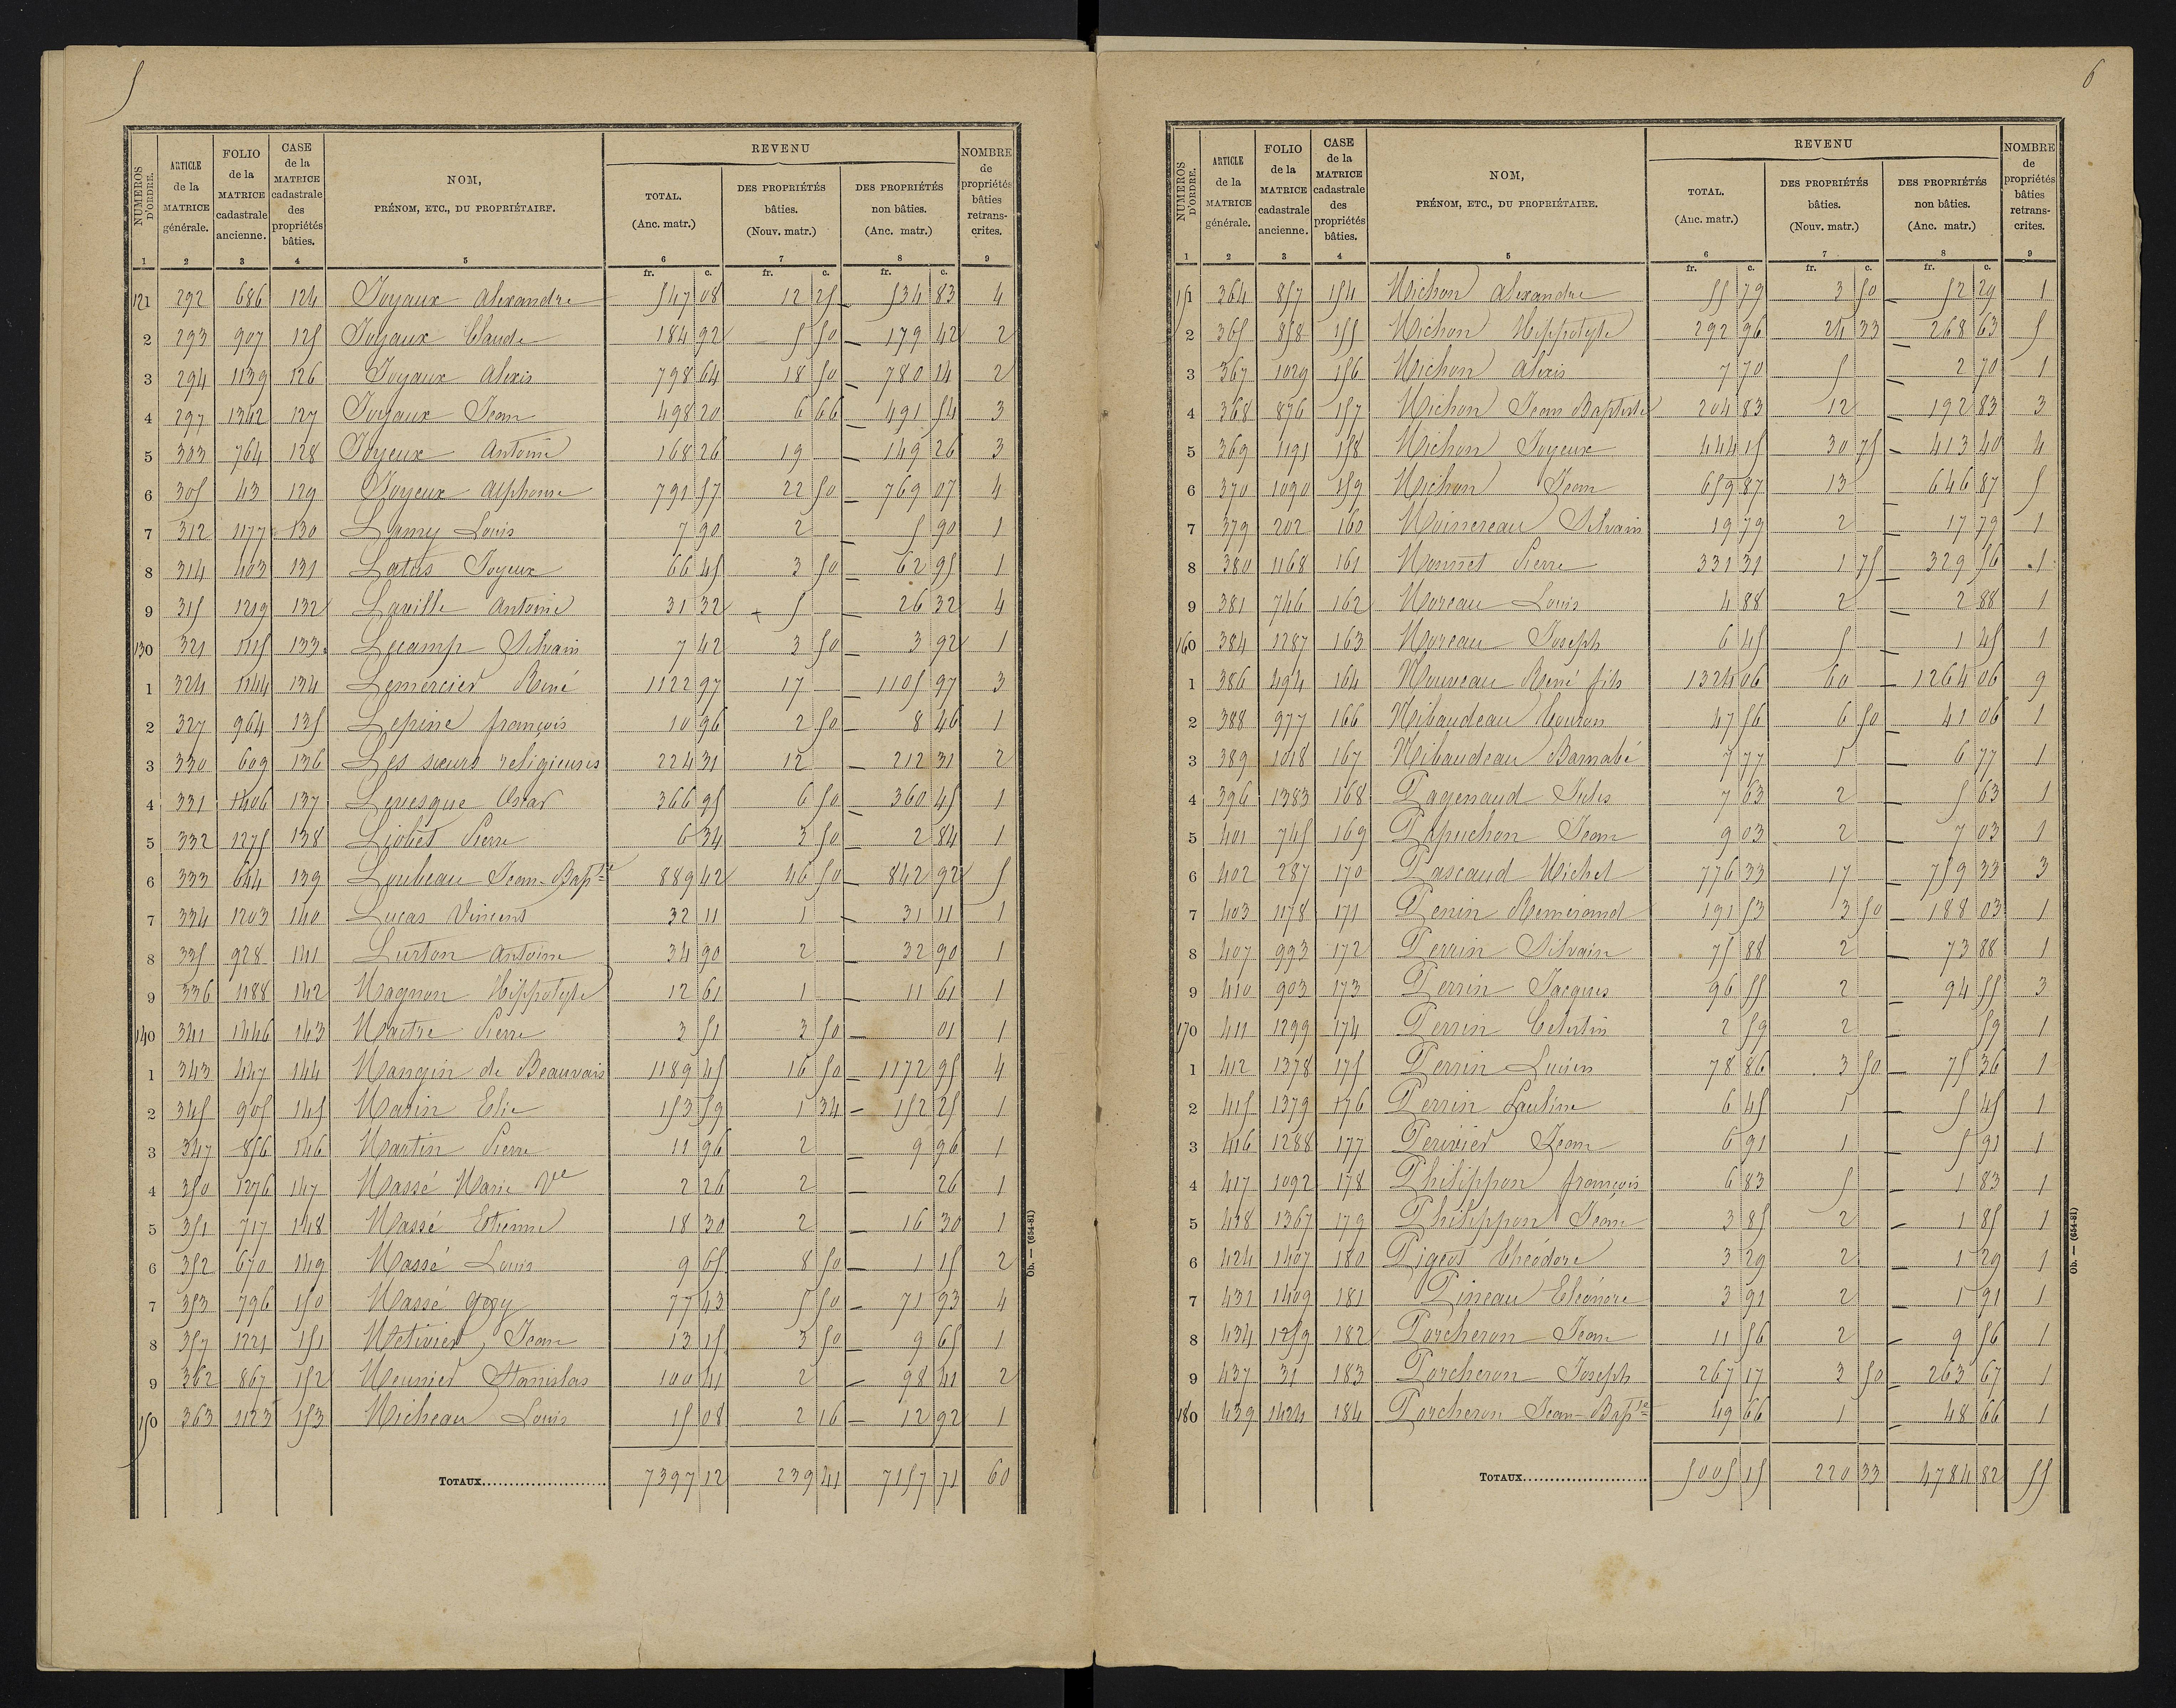 5
NUMEROS D'ORDRE. | ARTICLE de la MATRICE générale. | FOLIO de la MATRICE cadastrale ancienne. | CASE de la MATRICE cadastrale des propriétés bâties. | NOM, PRÉNOM, ETC., DU PROPRIÉTAIRE. | REVENU TOTAL. (Anc. matr.) | DES PROPRIÉTÉS bâties. (Nouv. matr.) | DES PROPRIÉTÉS non bâties. (Anc. matr.) | NOMBRE de propriétés bâties retranscrites.
1 2 3 4 5 6 7 8 9
fr. c. fr. c. fr. c.
121 292 686 124 Joyaux Alexandre 547 08 12 25 — 534 83 4
2 293 907 125 Joyaux Claude 184 92 5 50 — 179 42 2
3 294 1139 126 Joyaux Alexis 798 64 18 50 — 780 14 2
4 297 1362 127 Joyaux Jean 498 20 6 66 — 491 54 3
5 303 764 128 Joyeux Antoine 168 26 19 — 149 26 3
6 305 43 129 Joyeux Alphonse 791 57 22 50 — 769 07 4
7 312 1177 130 Lamy Louis 7 90 2 — 5 90 1
8 314 403 131 Latus Joyeux 66 45 3 50 — 62 95 1
9 315 1219 132 Laville Antoine 31 32 + 5 — 26 32 4
130 321 1115 133 Lecamp Silvain 7 42 3 50 — 3 92 1
1 324 1144 134 Lemercier René 1122 97 17 — 1105 97 3
2 327 964 135 Lepine françois 10 96 2 50 — 8 46 1
3 330 609 136 Les sœurs religieuses 224 31 12 — 212 31 2
4 331 1406 137 Levesque Oscar 366 95 6 50 — 360 45 1
5 332 1275 138 Liobet Pierre 6 34 3 50 — 2 84 1
6 333 644 139 Loubeau Jean-Bapte 889 42 46 50 — 842 92 5
7 334 1203 140 Lucas Vincent 32 11 1 — 31 11 1
8 335 928 141 Lurton Antoine 34 90 2 — 32 90 1
9 336 1188 142 Magnon Hippolyte 12 61 1 — 11 61 1
140 341 1446 143 Maitre Pierre 3 51 3 50 — 01 1
1 343 447 144 Mangin de Beauvais 1189 45 16 50 — 1172 95 4
2 345 905 145 Marin Elie 153 59 1 34 — 152 25 1
3 347 856 146 Martin Pierre 11 96 2 — 9 96 1
4 350 1276 147 Massé Marie Ve 2 26 2 — 26 1
5 351 717 148 Massé Etienne 18 30 2 — 16 30 1
6 352 670 149 Massé Louis 9 65 8 50 — 1 15 2
7 353 796 150 Massé Gory 77 43 5 50 — 71 93 4
8 357 1221 151 Metivier Jean 13 15 3 50 — 9 65 1
9 362 867 152 Meunier Stanislas 100 41 2 — 98 41 2
150 363 1123 153 Micheau Louis 15 08 2 16 — 12 92 1
TOTAUX 7397 12 239 41 7157 71 60
Ob. — (654-81)
6
NUMEROS D'ORDRE. | ARTICLE de la MATRICE générale. | FOLIO de la MATRICE cadastrale ancienne. | CASE de la MATRICE cadastrale des propriétés bâties. | NOM, PRÉNOM, ETC., DU PROPRIÉTAIRE. | REVENU TOTAL. (Anc. matr.) | DES PROPRIÉTÉS bâties. (Nouv. matr.) | DES PROPRIÉTÉS non bâties. (Anc. matr.) | NOMBRE de propriétés bâties retranscrites.
1 2 3 4 5 6 7 8 9
fr. c. fr. c. fr. c.
151 364 857 154 Michon Alexandre 55 79 3 50 — 52 29 1
2 365 858 155 Michon Hippolyte 292 96 24 33 — 268 63 5
3 367 1029 156 Michon Alexis 7 70 5 — 2 70 1
4 368 876 157 Michon Jean Baptiste 204 83 12 — 192 83 3
5 369 1191 158 Michon Joyeux 444 15 30 75 — 413 40 4
6 370 1090 159 Michon Jean 659 87 13 646 87 5
7 379 202 160 Moinereau Silvain 19 79 2 — 17 79 1
8 380 1168 161 Monnet Pierre 331 31 1 75 — 329 56 1
9 381 746 162 Moreau Louis 4 88 2 — 2 88 1
160 384 1287 163 Moreau Joseph 6 45 5 — 1 45 1
1 386 494 164 Mouveau René fils 1324 06 60 — 1264 06 9
2 388 977 166 Nibaudeau 47 56 6 50 — 41 06 1
3 389 1018 167 Nibaudeau Barnabé 7 77 1 — 6 77 1
4 396 1383 168 Pagenaud Jules 7 63 2 — 5 63 1
5 401 745 169 Papuchon Jean 9 03 2 — 7 03 1
6 402 287 170 Pascaud Michel 776 33 17 — 759 33 3
7 403 1178 171 Penin Remerand 191 53 3 50 — 188 03 1
8 407 993 172 Perrin Silvain 75 88 2 — 73 88 1
9 410 903 173 Perrin Jacques 96 55 2 — 94 55 3
170 411 1299 174 Perrin Celestin 2 59 2 59 1
1 412 1378 175 Perrin Lucien 78 86 3 50 — 75 36 1
2 415 1379 176 Perrin Pauline 6 45 1 — 5 45 1
3 416 1288 177 Perivier Jean 6 91 1 — 5 91 1
4 417 1092 178 Philippon françois 6 83 5 — 1 83 1
5 418 1367 179 Philippon Jean 3 85 2 — 1 85 1
6 424 1407 180 Pigeot Théodore 3 29 2 — 1 29 1
7 431 1409 181 Pineau Eléonore 3 91 2 — 1 91 1
8 434 1259 182 Porcheron Jean 11 56 2 — 9 56 1
9 437 31 183 Porcheron Joseph 267 17 3 50 — 263 67 1
180 439 1424 184 Porcheron Jean-Bapte 49 66 1 — 48 66 1
TOTAUX 5005 15 220 33 4784 82 55
Ob. — (654-81)